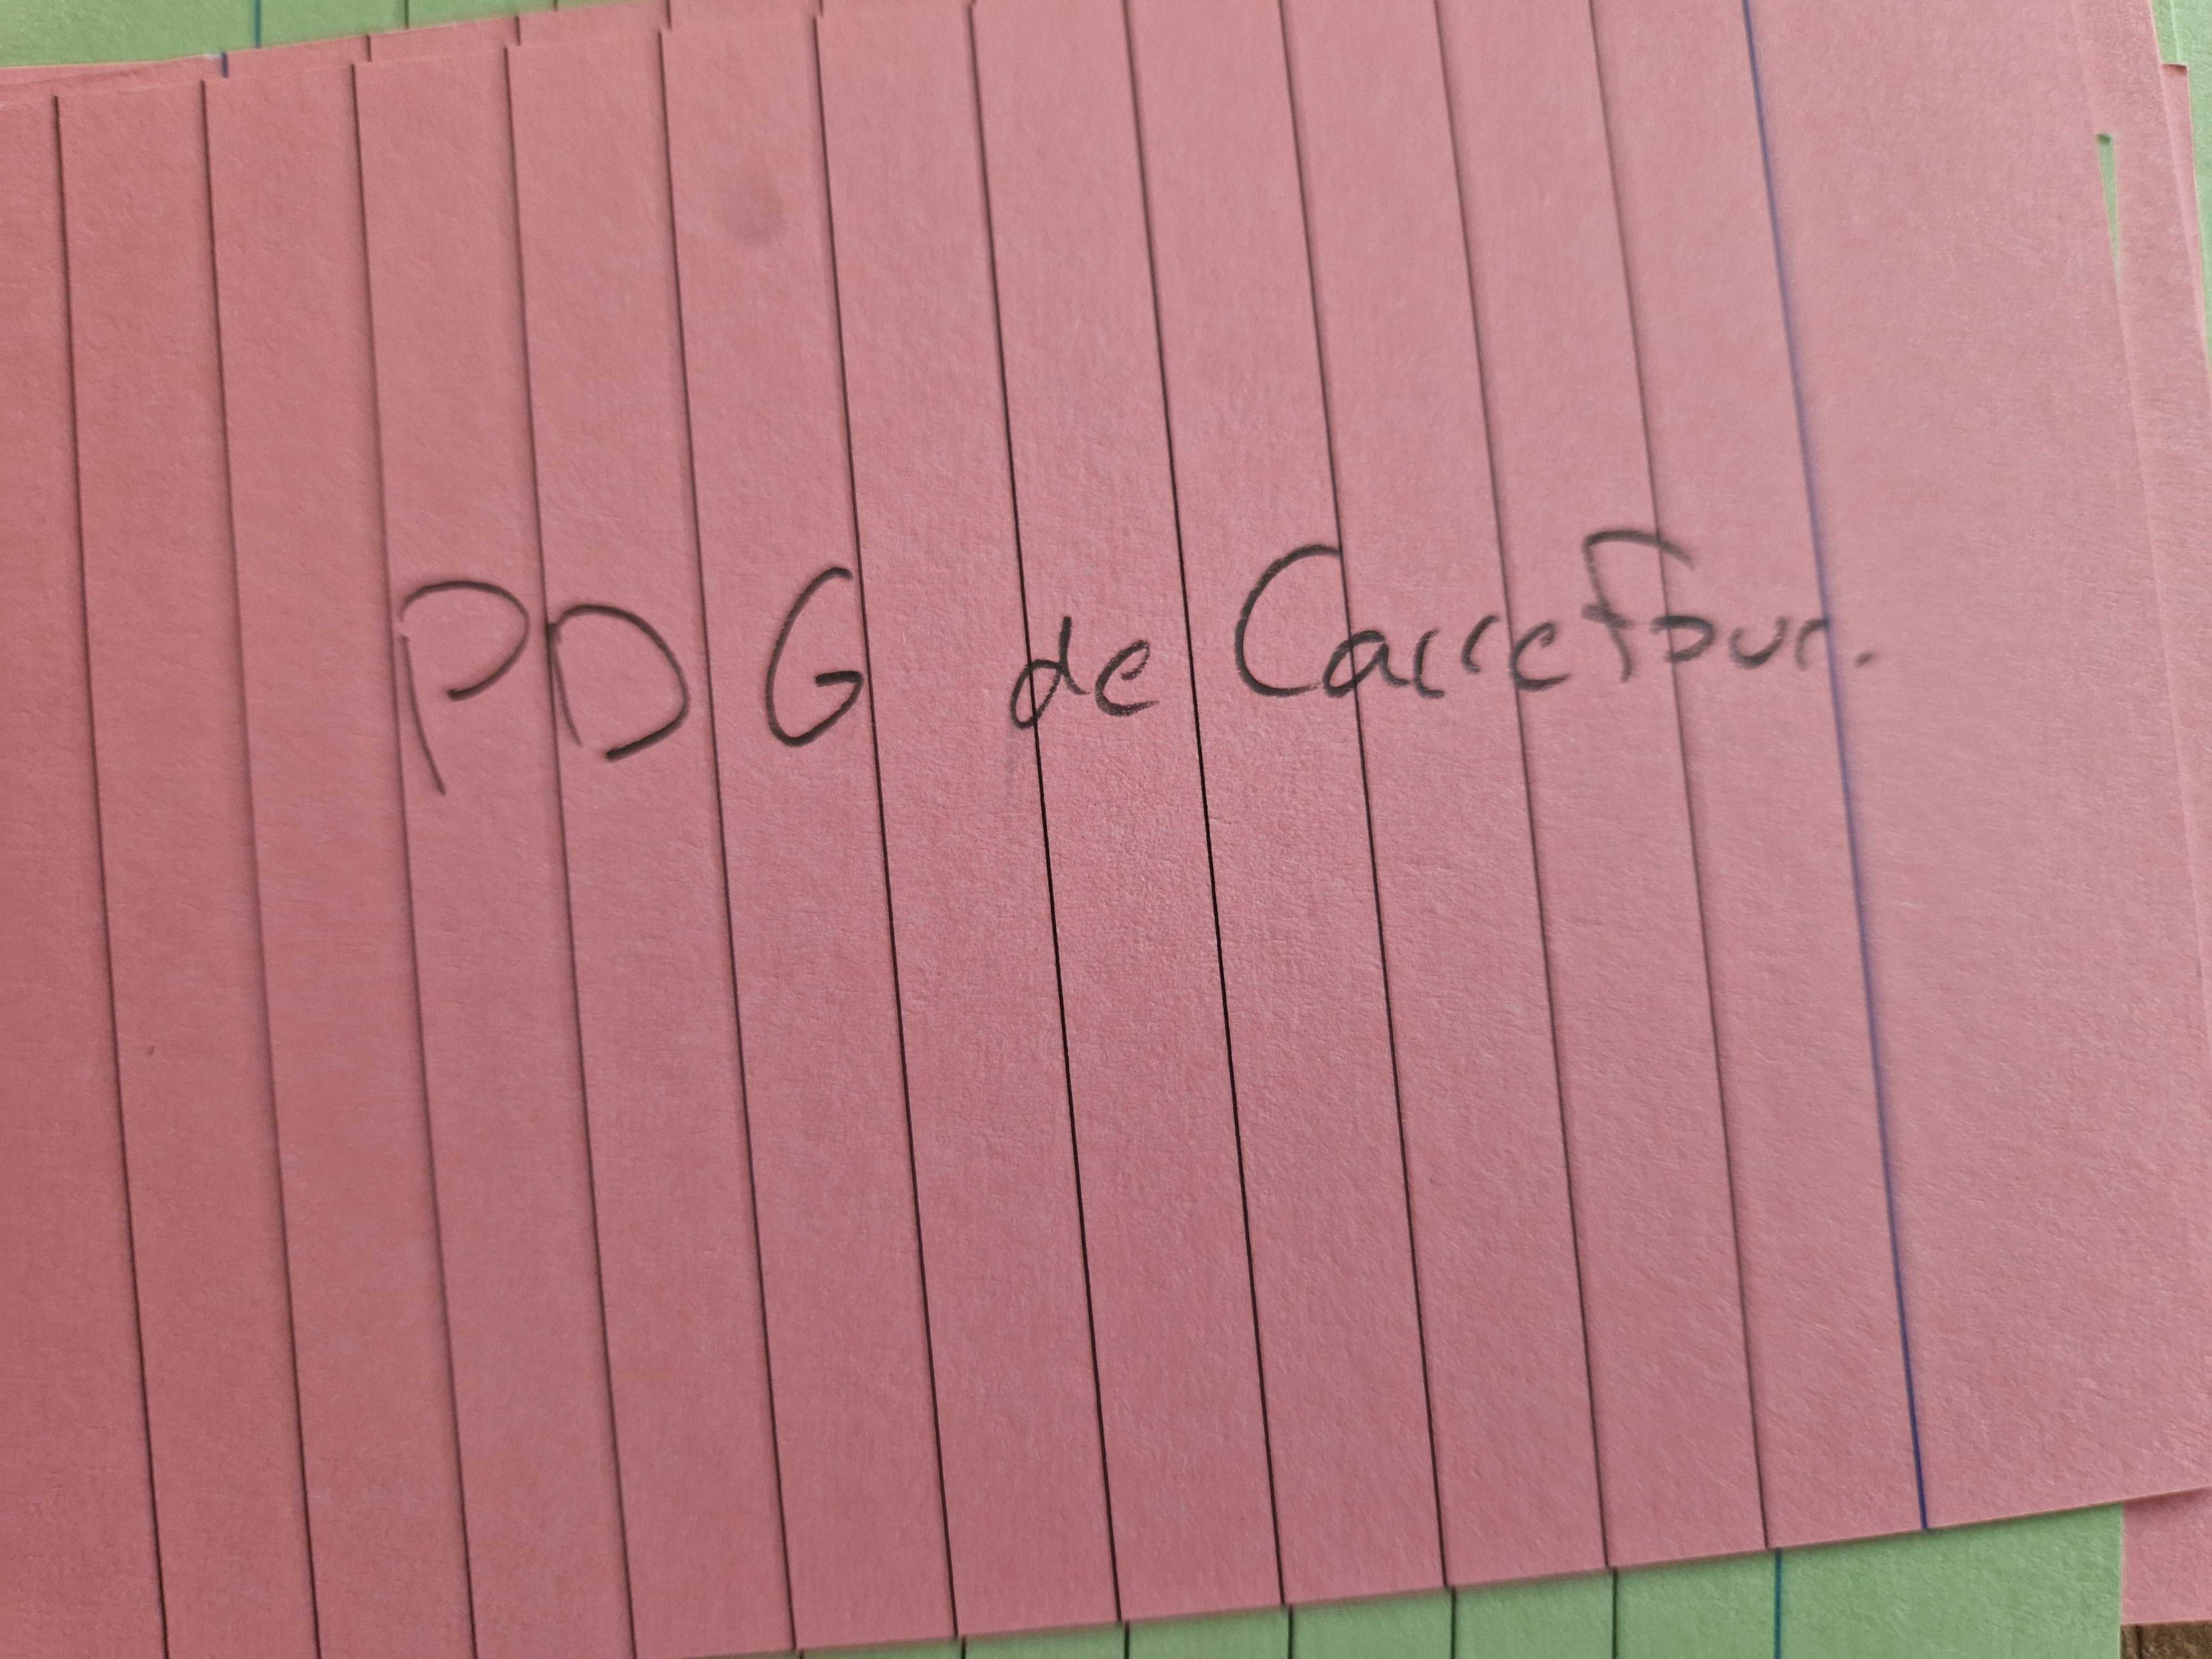 PDG de Carrefour.